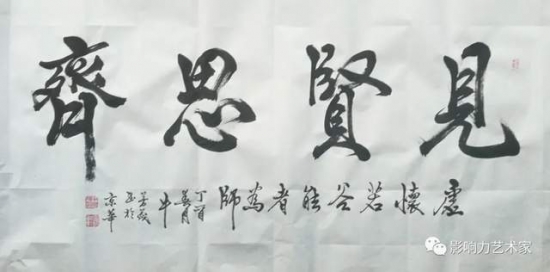 見賢思齊
虛懷若谷能者為師
丁酉
夏月
牛
書於
京華
影响力艺术家